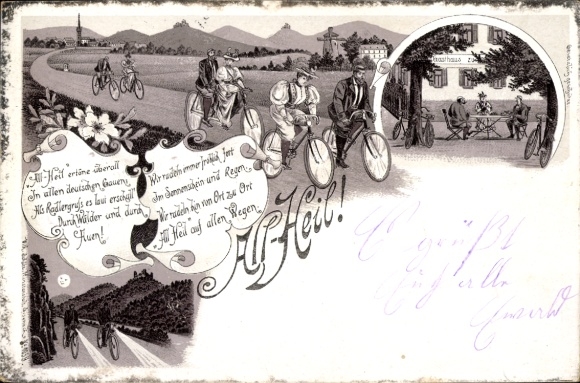 Gasthaus zu
"All-Heil" ertöne überall
In allen deutschen Gauen,
Als Radlergruß es laut erschallt
Durch Wälder und durch
Auen!
Wir radeln immer fröhlich fort
Im Sonnenschein und Regen,
Wir radeln hin von Ort zu Ort
"All Heil" auf allen Wegen.
All-Heil!
Es grüßt
Euch alle
Ewald